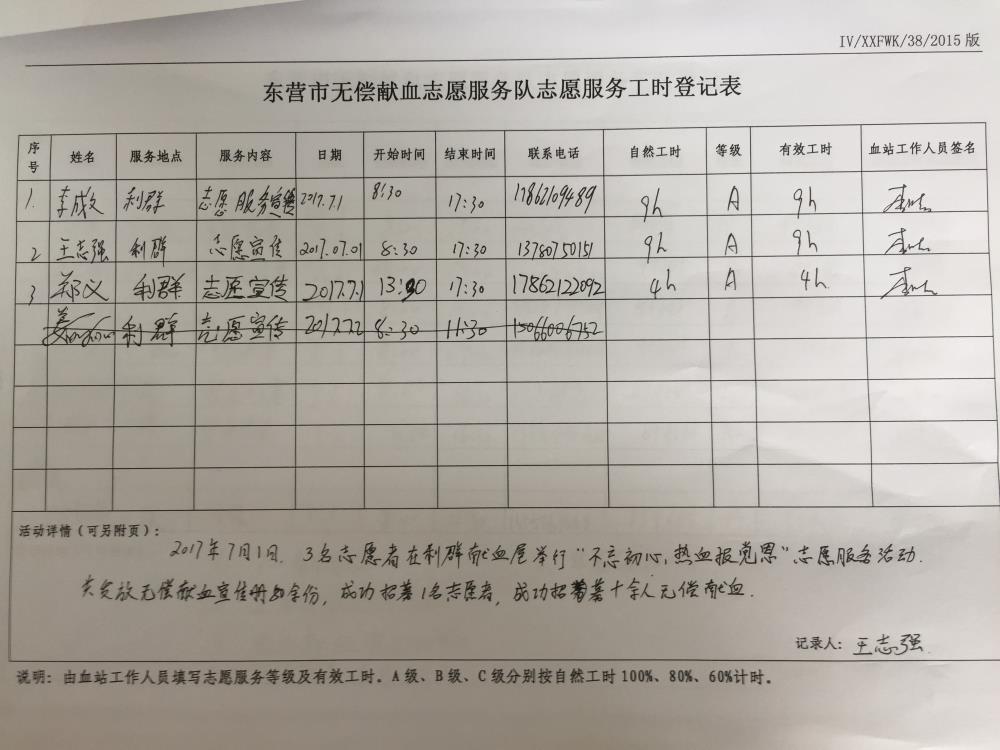 IV/XXFWK/38/2015 版
东营市无偿献血志愿服务队志愿服务工时登记表
序号 姓名 服务地点 服务内容 日期 开始时间 结束时间 联系电话 自然工时 等级 有效工时 血站工作人员签名
1. 李成文 利群 志愿服务宣传 2017.7.1 8:30 17:30 17862109489 9h A 9h
2 王志强 利群 志愿宣传 2017.07.01 8:30 17:30 13780750151 9h A 9h
3 郑义 利群 志愿宣传 2017.7.1 13:30 17:30 17862122092 4h A 4h
利群 志愿宣传 2017.7.2 8:30 11:30 15066006752
活动详情(可另附页):
2017年7月1日. 3名志愿者在利群献血屋举行“不忘初心,热血报党恩”志愿服务活动.
共发放无偿献血宣传册50余份, 成功招募1名志愿者, 成功招募十余人无偿献血.
记录人: 王志强
说明: 由血站工作人员填写志愿服务等级及有效工时。A 级、B 级、C 级分别按自然工时 100%、80%、60%计时。